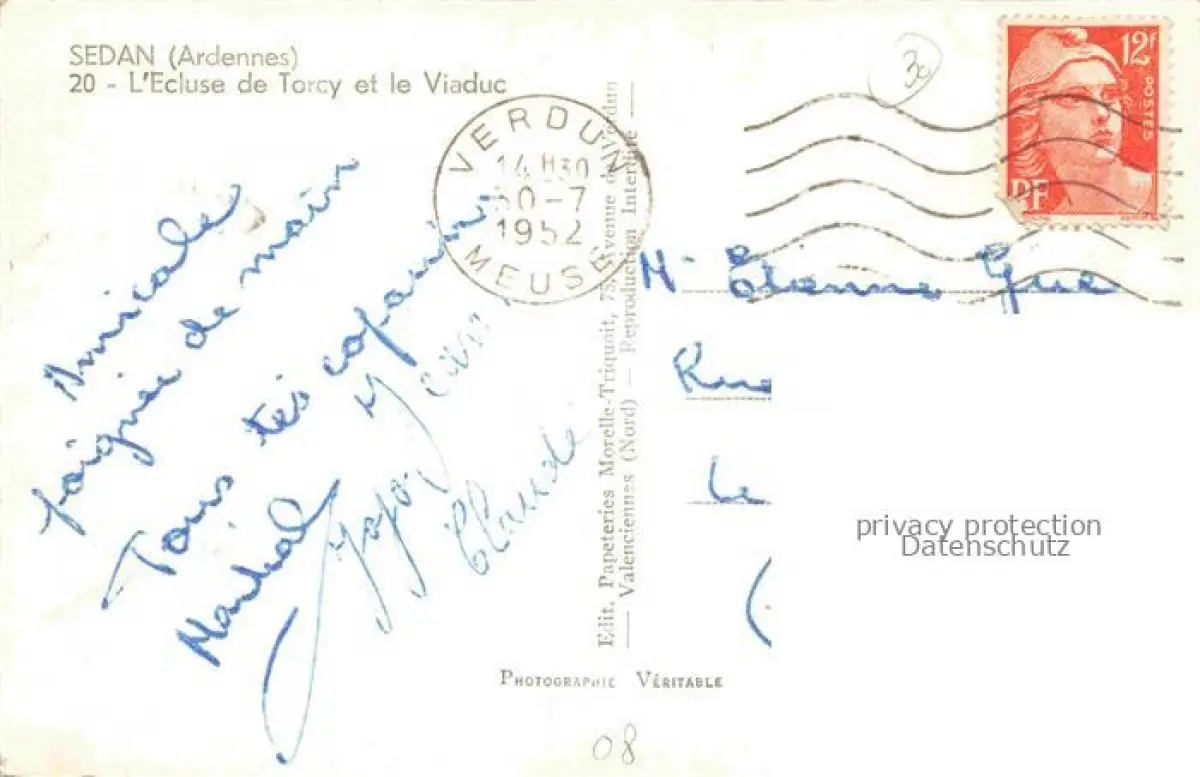 SEDAN (Ardennes)
20 - L'Ecluse de Torcy et le Viaduc
VERDUN
14 H30
30-7
1952
MEUSE
12f
POSTES
RF
30
Amicale
poignée de main
Tous tes copains
Martial
Claude
Edit. Papeteries Morelle-Triquoit, 75, avenue de Verdun
— Valenciennes (Nord) — Reproduction Interdite —
Mr Etienne
Rue
Le
(
privacy protection
Datenschutz
PHOTOGRAPHIE VÉRITABLE
08